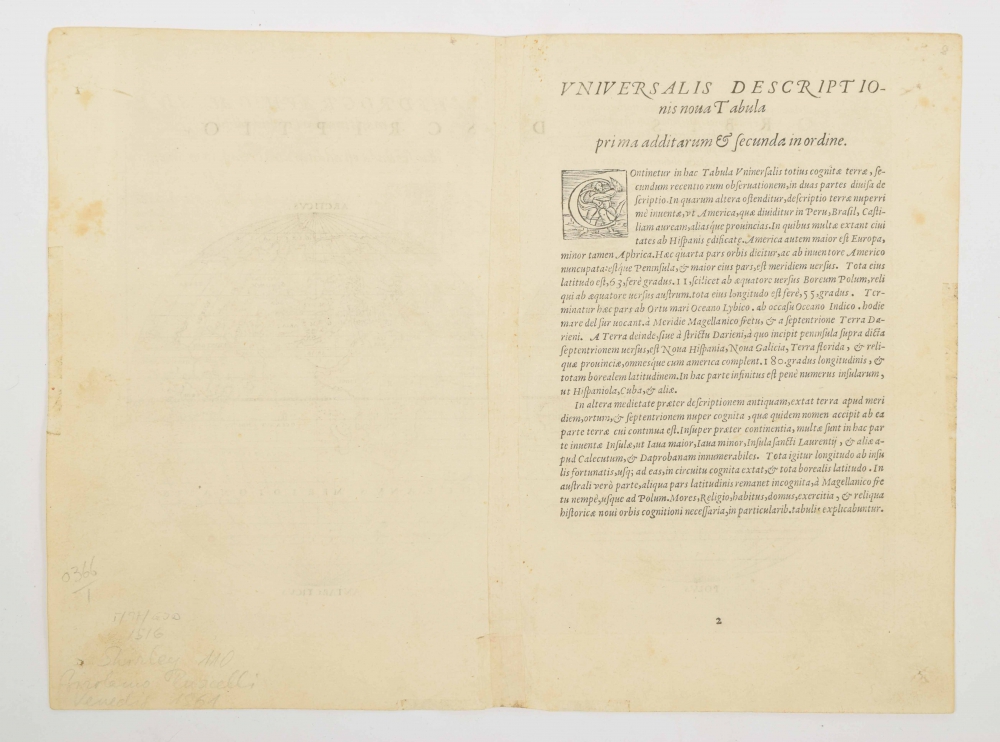 VNIVERSALIS DESCRIPTIO-
nis noua Tabula
prima additarum & secunda in ordine.
COntinetur in hac Tabula Vniuersalis totius cognitæ terræ, se-
cundum recentio rum obseruationem, in duas partes diuisa de
scriptio. In quarum altera ostenditur, descriptio terræ nuperri
mè inuentæ, vt America, quæ diuiditur in Peru, Brasil, Casti-
liam auream, aliasque prouincias. In quibus multæ extant ciui
tates ab Hispanis edificatę. America autem maior est Europa,
minor tamen Aphrica. Hæc quarta pars orbis dicitur, ac ab inuentore Americo
nuncupata: estque Peninsula, & maior eius pars, est meridiem uersus. Tota eius
latitudo est, 63, ferè gradus. 11, scilicet ab æquatore uersus Boreum Polum, reli
qui ab æquatore uersus austrum. tota eius longitudo est ferè, 55, gradus. Ter-
minatur hæc pars ab Ortu mari Oceano Lybico. ab occasu Oceano Indico. hodie
mare del sur uocant. à Meridie Magellanico fretu, & a septentrione Terra Da-
rieni. A Terra deinde, siue à strictu Darieni, à quo incipit peninsula supra dicta
septentrionem uersus, est Noua Hispania, Noua Galicia, Terra florida, & reli-
quæ prouinciæ, omnesque cum america complent. 180. gradus longitudinis, &
totam borealem latitudinem. In hac parte infinitus est penè numerus insularum,
ut Hispaniola, Cuba, & aliæ.
In altera medietate præter descriptionem antiquam, extat terra apud meri
diem, ortum, & septentrionem nuper cognita, quæ quidem nomen accipit ab ea
parte terræ cui continua est. Insuper præter continentia, multæ sunt in hac par
te inuentæ Insulæ, ut Iaua maior, Iaua minor, Insula sancti Laurentij, & aliæ a-
pud Calecutum, & Daprobanam innumerabiles. Tota igitur longitudo ab insu
lis fortunatis, usq; ad eas, in circuitu cognita extat, & tota borealis latitudo. In
australi verò parte, aliqua pars latitudinis remanet incognita, à Magellanico fre
tu nempè, usque ad Polum. Mores, Religio, habitus, domus, exercitia, & reliqua
historicæ noui orbis cognitioni necessaria, in particularib. tabulis explicabuntur.
2
0366
1
1516